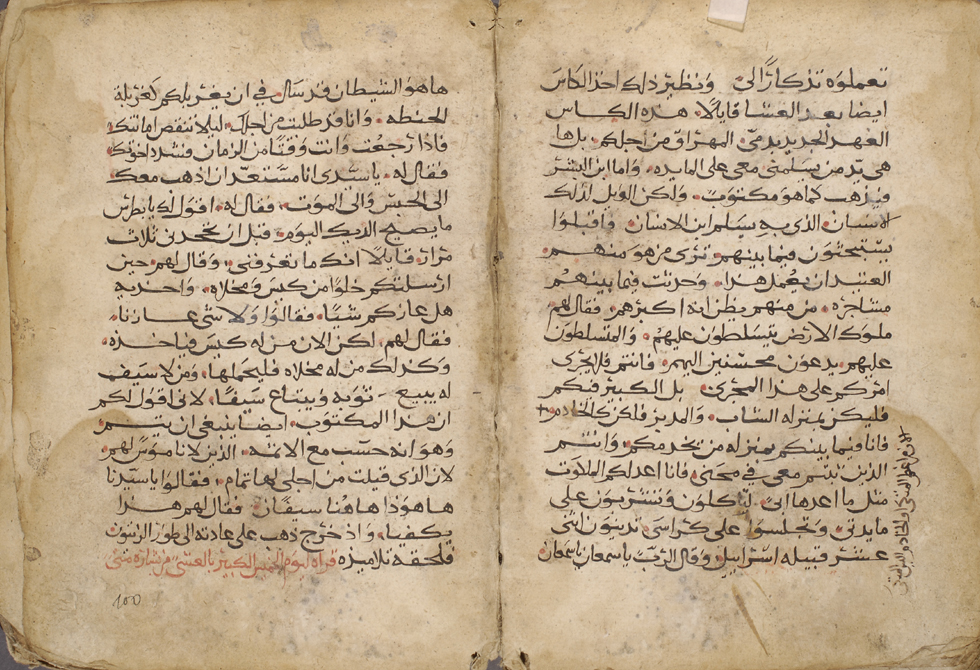 تعملوه تذكارًا لي ونظير ذلك اخذ الكاس
ايضا بعد العشا قايلًا هذه الكاس
العهد الجديد بدمي المهراق من اجلكم بل ها
هي يد من يسلمني معي على المايده واما ابن البشر
فيذهب كما هو مكتوب ولكن الويل لذلك
الانسان الذي به يسلم ابن الانسان واقبلوا
يتبحثون فيما بينهم ترى من هو منهم
العتيد ان يعمل هذا وحدثت فيما بينهم
مشاجره من منهم يظن انه اكبرهم فقال لهم
ملوك الارض يتسلطون عليهم والمتسلطون
عليهم يدعون محسنين اليهم فانتم فلا يجرى
امركم على هذا المجرى بل الكبير فيكم
فليكن بمنزله الشاب والمدبر فليكن كالخادم
فانا فيما بينكم بمنزله من يخدمكم وانتم
الذين ثبتم معي في محني فانا اعد لكم الملكوت
مثل ما اعدها ابي لتاكلون وتشربون على
مايدتي وتجلسوا على كراسي تدينون اثني
عشر قبيله اسرائيل وقال الرب يا سمعان يا سمعان
ها هو الشيطان قد سال في ان يغربلكم كغربلة
الحنطه وانا قد طلبت من اجلك ليلا تنقص امانتك
فاذا رجعت وانت وقتًا من الزمان فشدد اخوتك
فقال له يا سيدي انا مستعد ان اذهب معك
الى الحبس والى الموت فقال له اقول لك يا بطرس
ما يصيح الديك اليوم قبل ان تجحدني ثلاث
مرار قايلًا انك ما تعرفني وقال لهم حين
ارسلتكم خلوا من كيس ومخلاه واحذيه
هل عازكم شيًا فقالوا ولا شي عازنا
فقال لهم لكن الان من له كيس فياخذه
وكذلك من له مخلاه فليحملها ومن لا سيف
له يبيع ثوبه ويبتاع سيفًا لاني اقول لكم
ان هذا المكتوب ايضا ينبغي ان يتم
وهو انه حسب مع الاثمه
لان الذي قيلت من اجلي لها تمام فقالوا يا سيدنا
ها هوذا هاهنا سيفان فقال لهم هذا
يكفينا واذ خرج ذهب على عادته الى طور الزيتون
فلحقه تلاميذه قراة ليوم الخميس الكبير بالعشي من بشارة متى
100